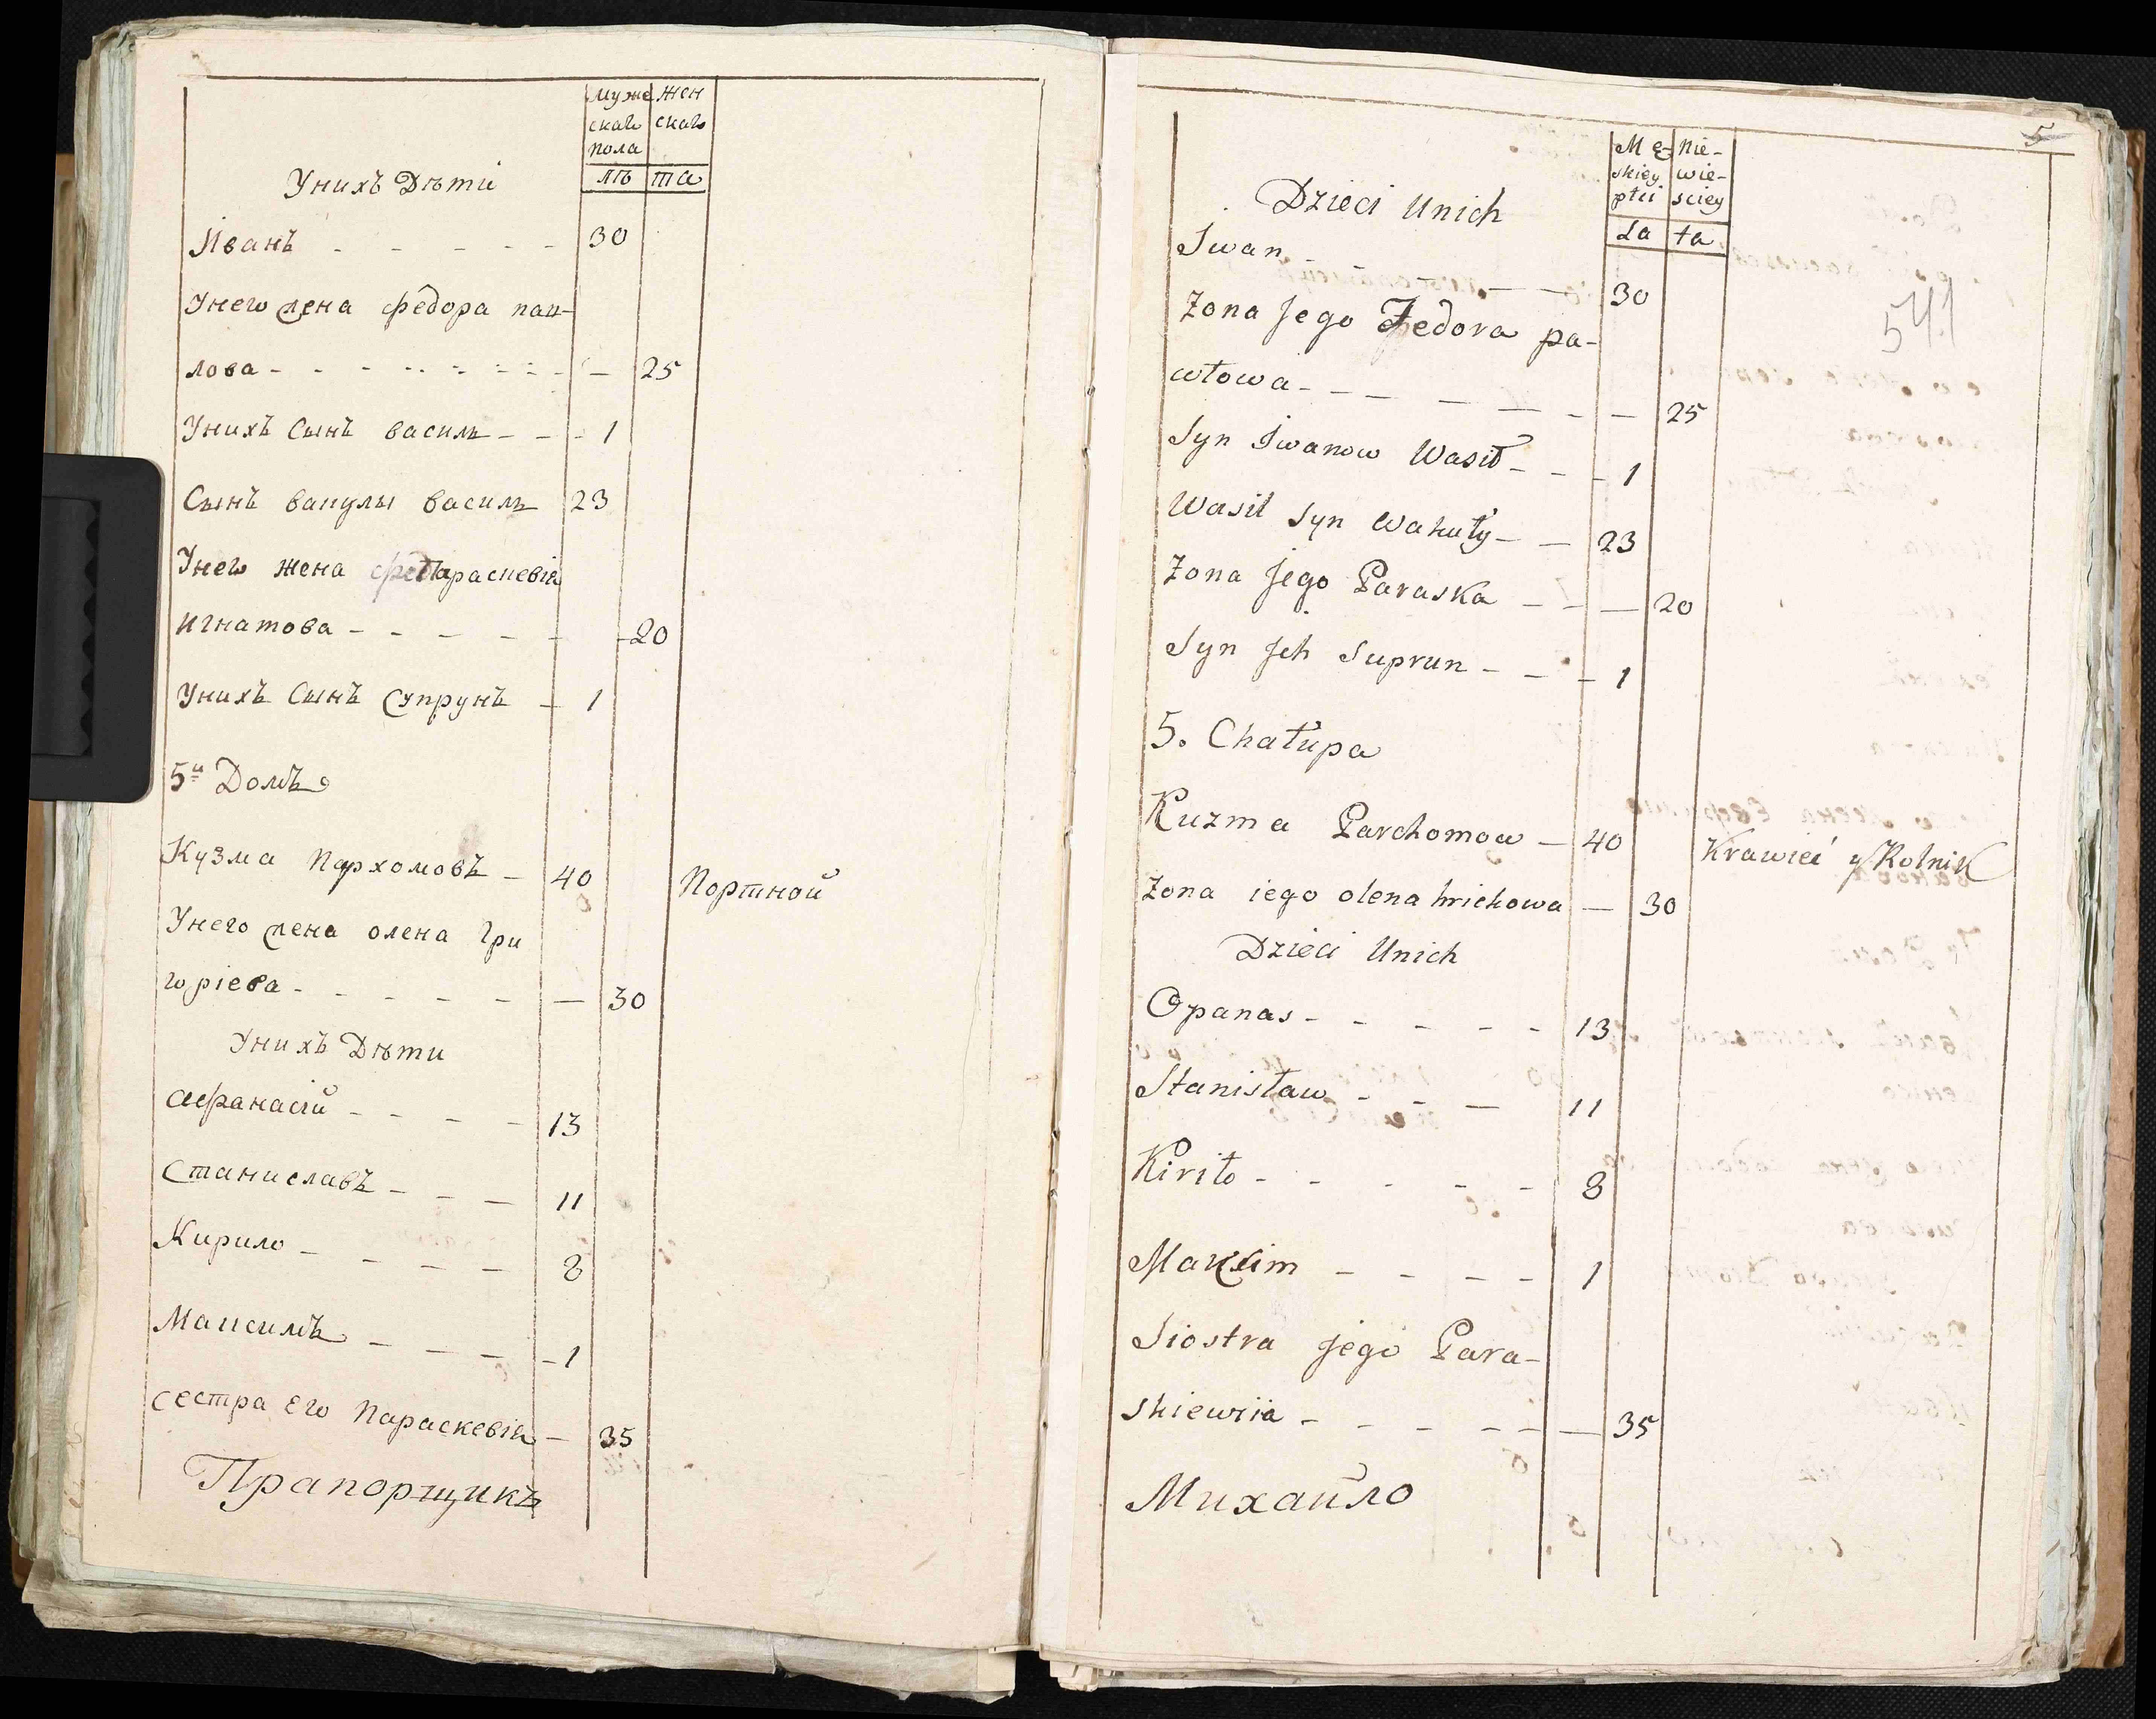 Муже жен
скагω скагω
пола
лѣ та
Унихъ Дѣти
Иванъ - - - - - 30
Унего жена федора пав-
лова - - - - - - - - 25
Унихъ Сынъ василь - - - 1
Сынъ вакулы василь 23
Унегω жена параскевія
игнатова - - - - - 20
Унихъ Сынъ Супрунъ - 1
5й Домъ
Кузма Пархомовъ - 40 Портной
Унего жена олена гри
гωріева - - - - - - 30
Унихъ Дѣти
Афанасій - - - - 13
Станиславъ - - - 11
Кирило - - - - 8
Максимъ - - - - 1
Сестра Его Параскевія - 35
Прапорщикъ
5
Mę- nie-
skiey wie-
płci sciey
La ta
541
Dzieci Unich
Iwan - - - - 30
Zona Jego Fedora pa-
włowa - - - - - - - - 25
Syn Iwanow Wasil - - - 1
Wasil syn Wakuły - - 23
Zona Jego Paraska - - - 20
Syn Jch Suprun - - - 1
5. Chałupa
Kuzma Parchomow - 40 Krawieć y Rolnik
Zona iego olena hrichowa - 30
Dzieci Unich
Opanas - - - - - 13
Stanisław - - - 11
Kiriło - - - - - 8
Maxim - - - - 1
Siostra Jego Para-
skiewiia - - - - - - 35
Михайло